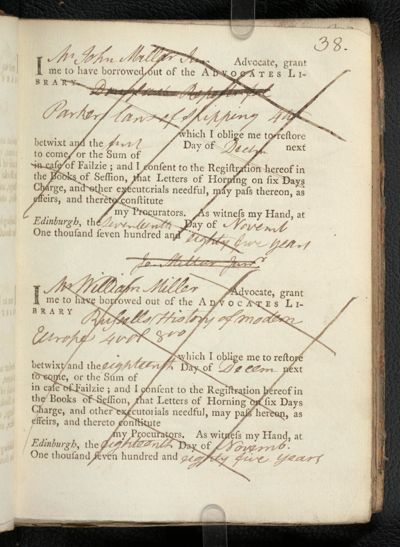 38.
I Mr John Millar Junr. Advocate, grant
me to have borrowed out of the ADVOCATES LI-
BRARY
Parker laws of shipping 4to
which I oblige me to restore
betwixt and the first Day of Decr. next
to come, or the Sum of
in case of Failzie; and I consent to the Registration hereof in
the Books of Session, that Letters of Horning on six Days
Charge, and other executorials needful, may pass thereon, as
effeirs, and thereto constitute
my Procurators. As witness my Hand, at
Edinburgh, the Seventeenth Day of Novemb
One thousand seven hundred and eighty five years
Jo. Millar Junr.
I Mr William Miller Advocate, grant
me to have borrowed out of the ADVOCATES LI-
BRARY Russells History of modern
Europe 4 vol 8vo
which I oblige me to restore
betwixt and the eighteenth Day of Decem next
to come, or the Sum of
in case of Failzie; and I consent to the Registration hereof in
the Books of Session, that Letters of Horning on six Days
Charge, and other executorials needful, may pass hereon, as
effeirs, and thereto constitute
my Procurators. As witness my Hand, at
Edinburgh, the eighteenth Day of Novemb.
One thousand seven hundred and eighty five years